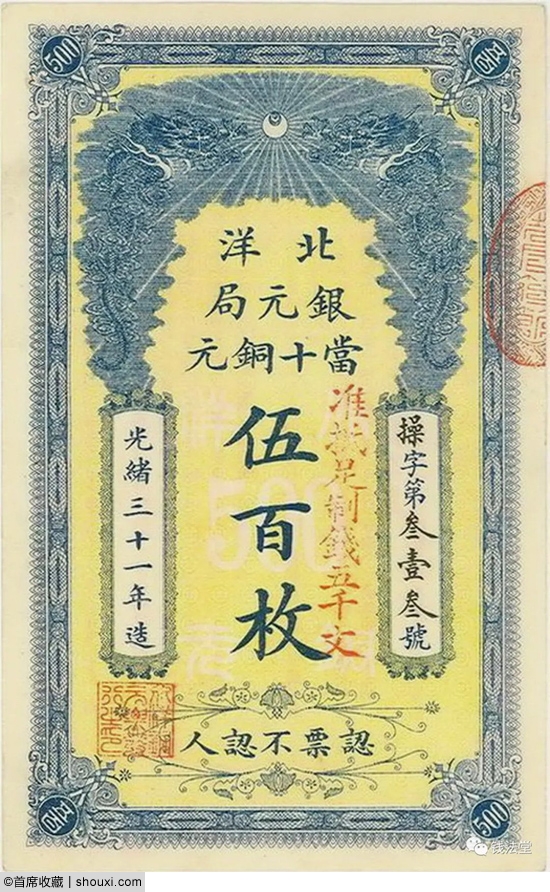 500
北洋
銀元局
當十銅元
伍百枚
准抵足制錢五千文
操字第叁壹叁號
光緒三十一年造
500
認票不認人
500
钱法堂
©首席收藏 | shouxi.com